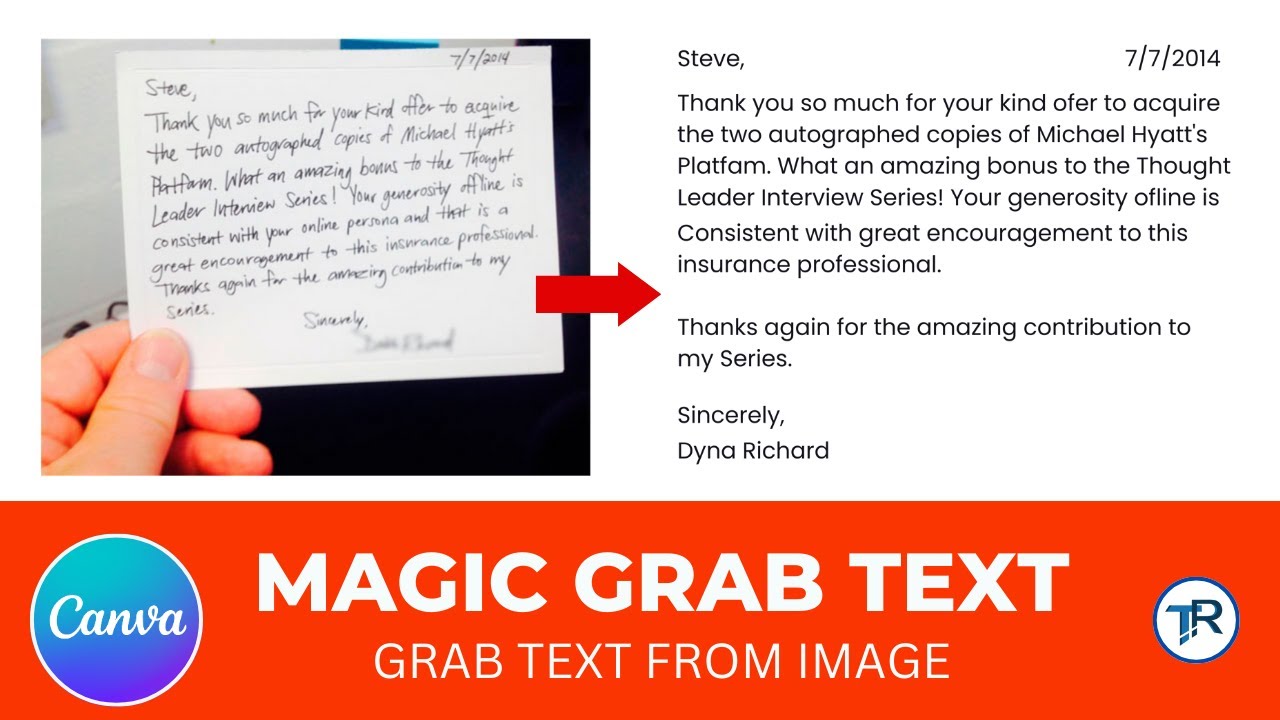 7/7/2014
Steve,
Thank you so much for your kind offer to acquire
the two autographed copies of Michael Hyatt's
Platfam. What an amazing bonus to the Thought
Leader Interview Series! Your generosity offline is
consistent with your online persona and that is a
great encouragement to this insurance professional.
Thanks again for the amazing contribution to my
Series.
Sincerely,
Steve,
7/7/2014
Thank you so much for your kind ofer to acquire
the two autographed copies of Michael Hyatt's
Platfam. What an amazing bonus to the Thought
Leader Interview Series! Your generosity ofline is
Consistent with great encouragement to this
insurance professional.
Thanks again for the amazing contribution to
my Series.
Sincerely,
Dyna Richard
Canva
MAGIC GRAB TEXT
GRAB TEXT FROM IMAGE
TR